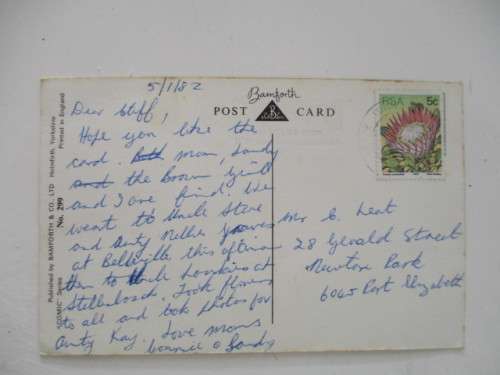 5/1/82
Bamforth
POST CARD
RSA 5c
Dear Cliff,
Hope you like the
card. Both mom, Sandy
and the brown
and I are fine. We
went to Uncle Steve
and Aunty Nellies graves
at Bellville this afternoon
then to Uncle at
Stellenbosch. Took flowers
to all and took photos for
Aunty Kay. Love moms
bonnie & Sandy
Mr C. Leat
28 Gerald Street
Newton Park
6045 Port Elizabeth
Published by BAMFORTH & CO. LTD Holmfirth, Yorkshire
"COSMIC" Series No. 299 Printed in England